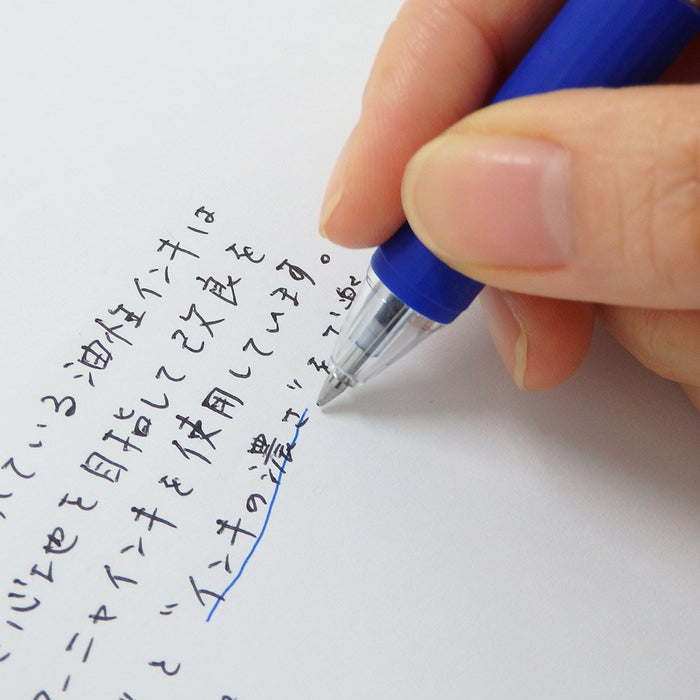 ている油性インキは
心地を目指して改良を
ャニーインキを使用しています。
"インキの濃さ"を
"と